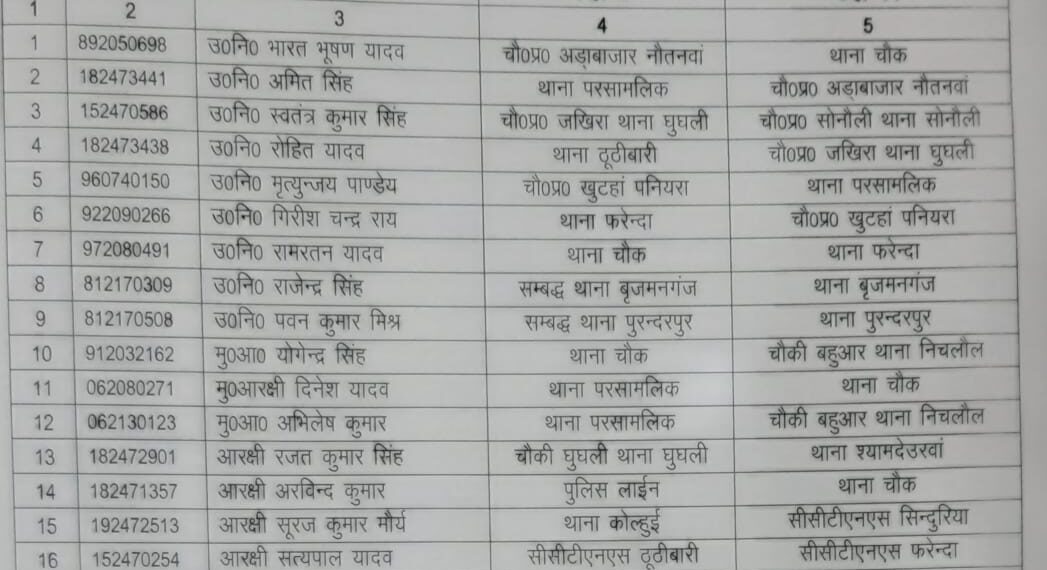 1 2 3 4 5
1 892050698 उ0नि0 भारत भूषण यादव चौ0प्र0 अड़ाबाजार नौतनवां थाना चौक
2 182473441 उ0नि0 अमित सिंह थाना परसामलिक चौ0प्र0 अड़ाबाजार नौतनवां
3 152470586 उ0नि0 स्वतंत्र कुमार सिंह चौ0प्र0 जखिरा थाना घुघली चौ0प्र0 सोनौली थाना सोनौली
4 182473438 उ0नि0 रोहित यादव थाना ठूठीबारी चौ0प्र0 जखिरा थाना घुघली
5 960740150 उ0नि0 मृत्युन्जय पाण्डेय चौ0प्र0 खुटहां पनियरा थाना परसामलिक
6 922090266 उ0नि0 गिरीश चन्द्र राय थाना फरेन्दा चौ0प्र0 खुटहां पनियरा
7 972080491 उ0नि0 रामरतन यादव थाना चौक थाना फरेन्दा
8 812170309 उ0नि0 राजेन्द्र सिंह सम्बद्ध थाना बृजमनगंज थाना बृजमनगंज
9 812170508 उ0नि0 पवन कुमार मिश्र सम्बद्ध थाना पुरन्दरपुर थाना पुरन्दरपुर
10 912032162 मु0आ0 योगेन्द्र सिंह थाना चौक चौकी बहुआर थाना निचलौल
11 062080271 मु0आरक्षी दिनेश यादव थाना परसामलिक थाना चौक
12 062130123 मु0आ0 अभिलेष कुमार थाना परसामलिक चौकी बहुआर थाना निचलौल
13 182472901 आरक्षी रजत कुमार सिंह चौकी घुघली थाना घुघली थाना श्यामदेउरवां
14 182471357 आरक्षी अरविन्द कुमार पुलिस लाईन थाना चौक
15 192472513 आरक्षी सूरज कुमार मौर्य थाना कोल्हुई सीसीटीएनएस सिन्दुरिया
16 152470254 आरक्षी सत्यपाल यादव सीसीटीएनएस ठूठीबारी सीसीटीएनएस फरेन्दा